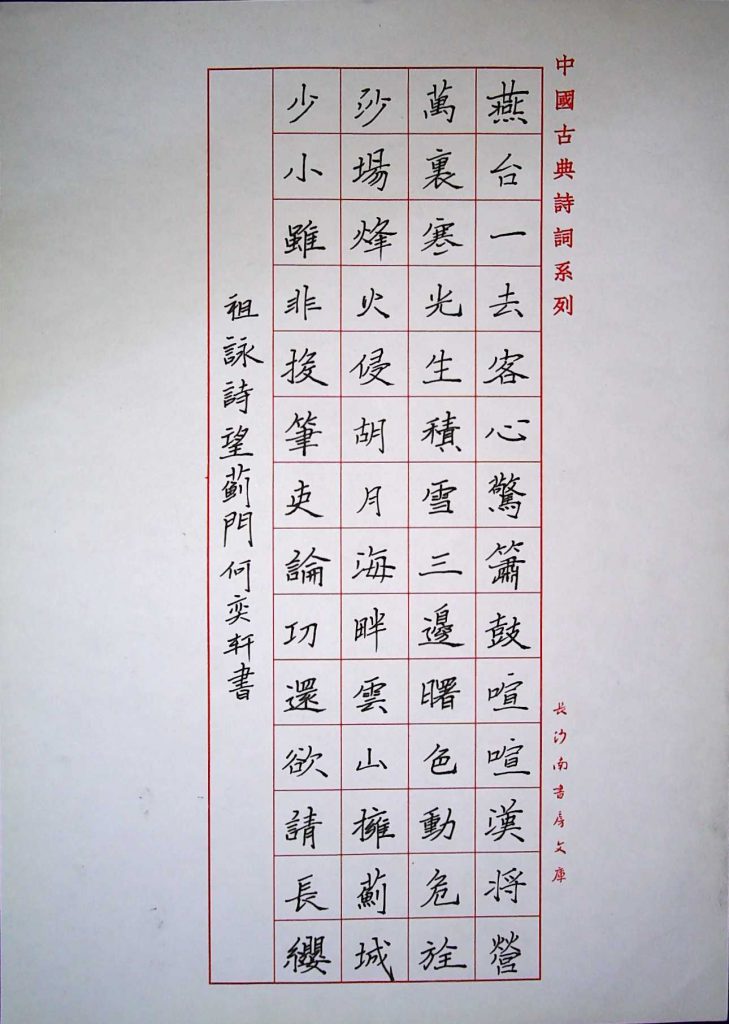 中國古典詩詞系列
长沙南书房文庫
燕台一去客心驚簫鼓喧喧漢将營
萬裏寒光生積雪三邊曙色動危旌
沙場烽火侵胡月海畔雲山擁薊城
少小雖非投筆吏論功還欲請長纓
祖詠詩望薊門何奕軒書